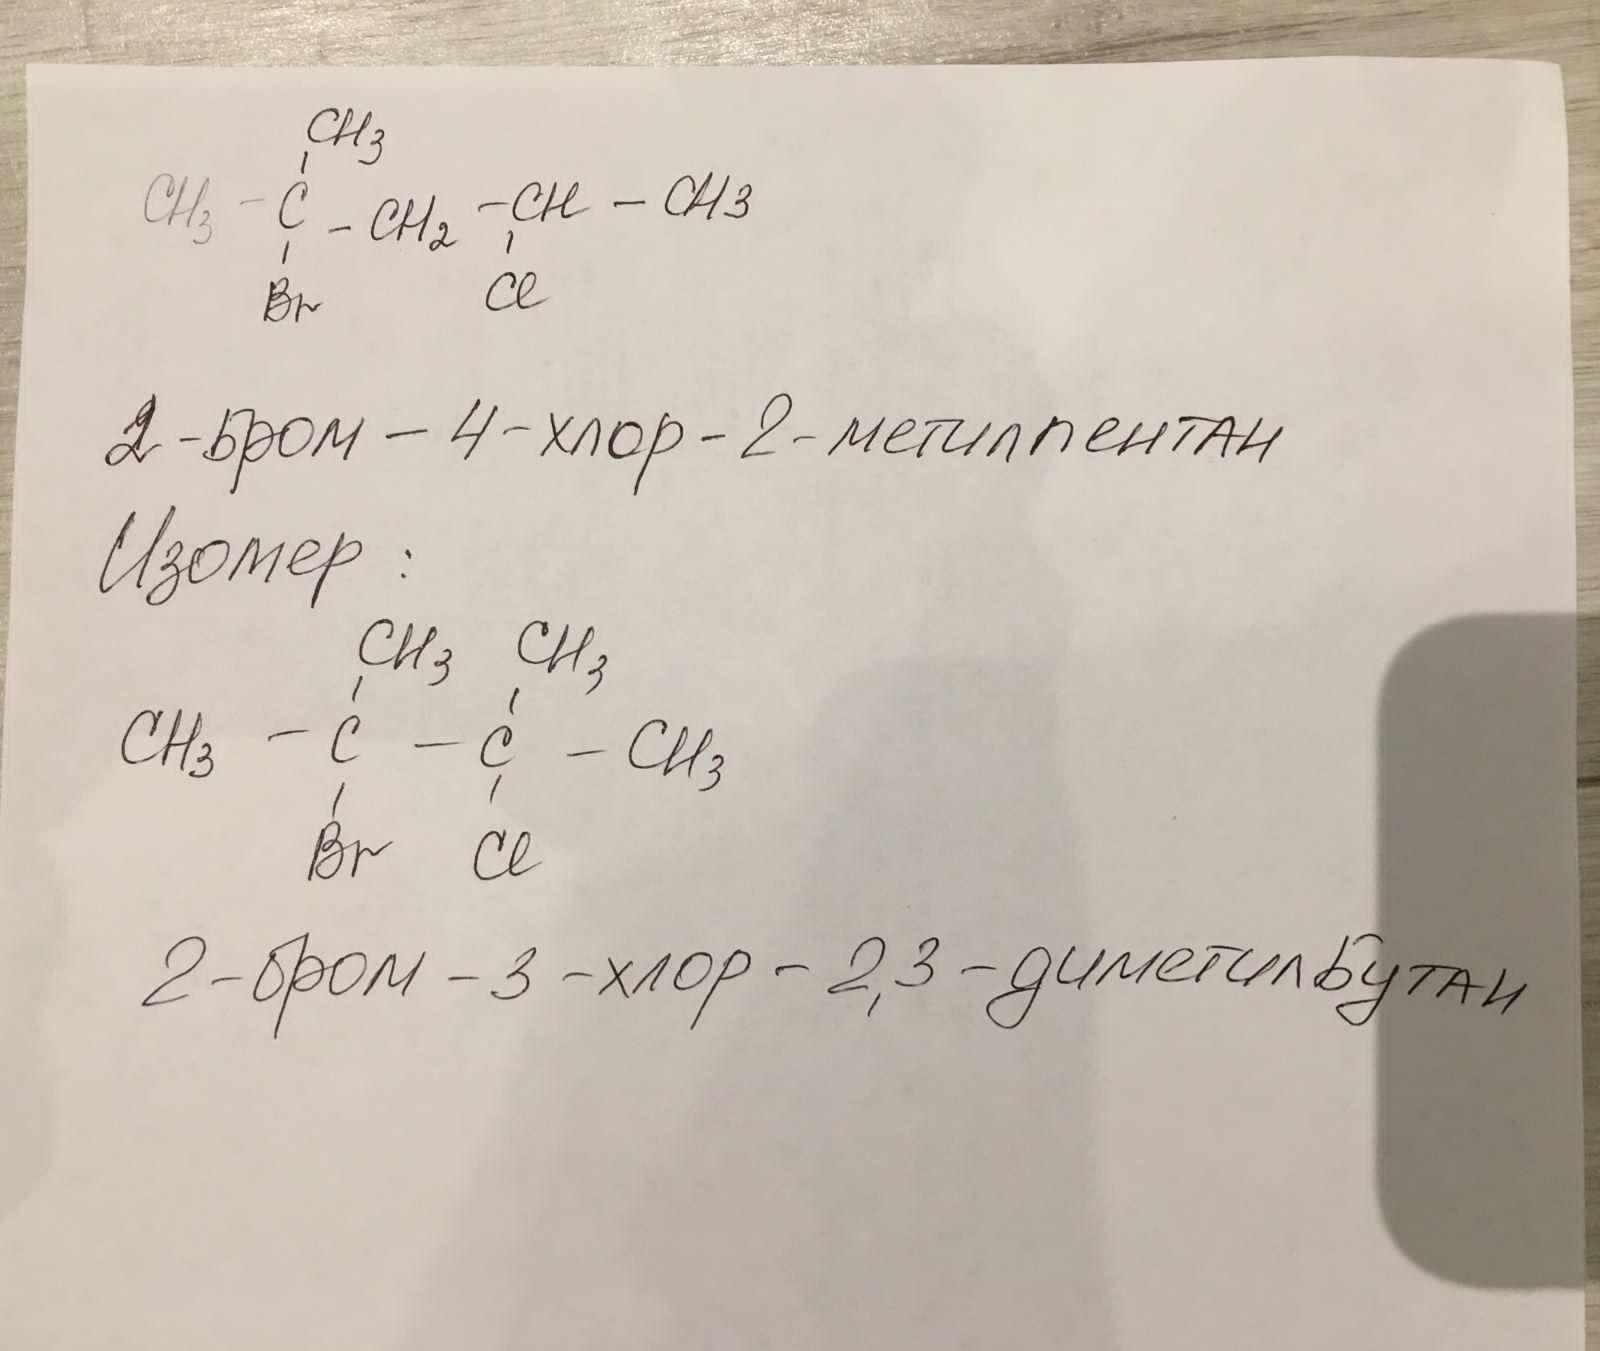 CH3
CH3 - C - CH2 - CH - CH3
Br Cl
2-бром-4-хлор-2-метилпентан
Изомер:
CH3 CH3
CH3 - C - C - CH3
Br Cl
2-бром-3-хлор-2,3-диметилбутан